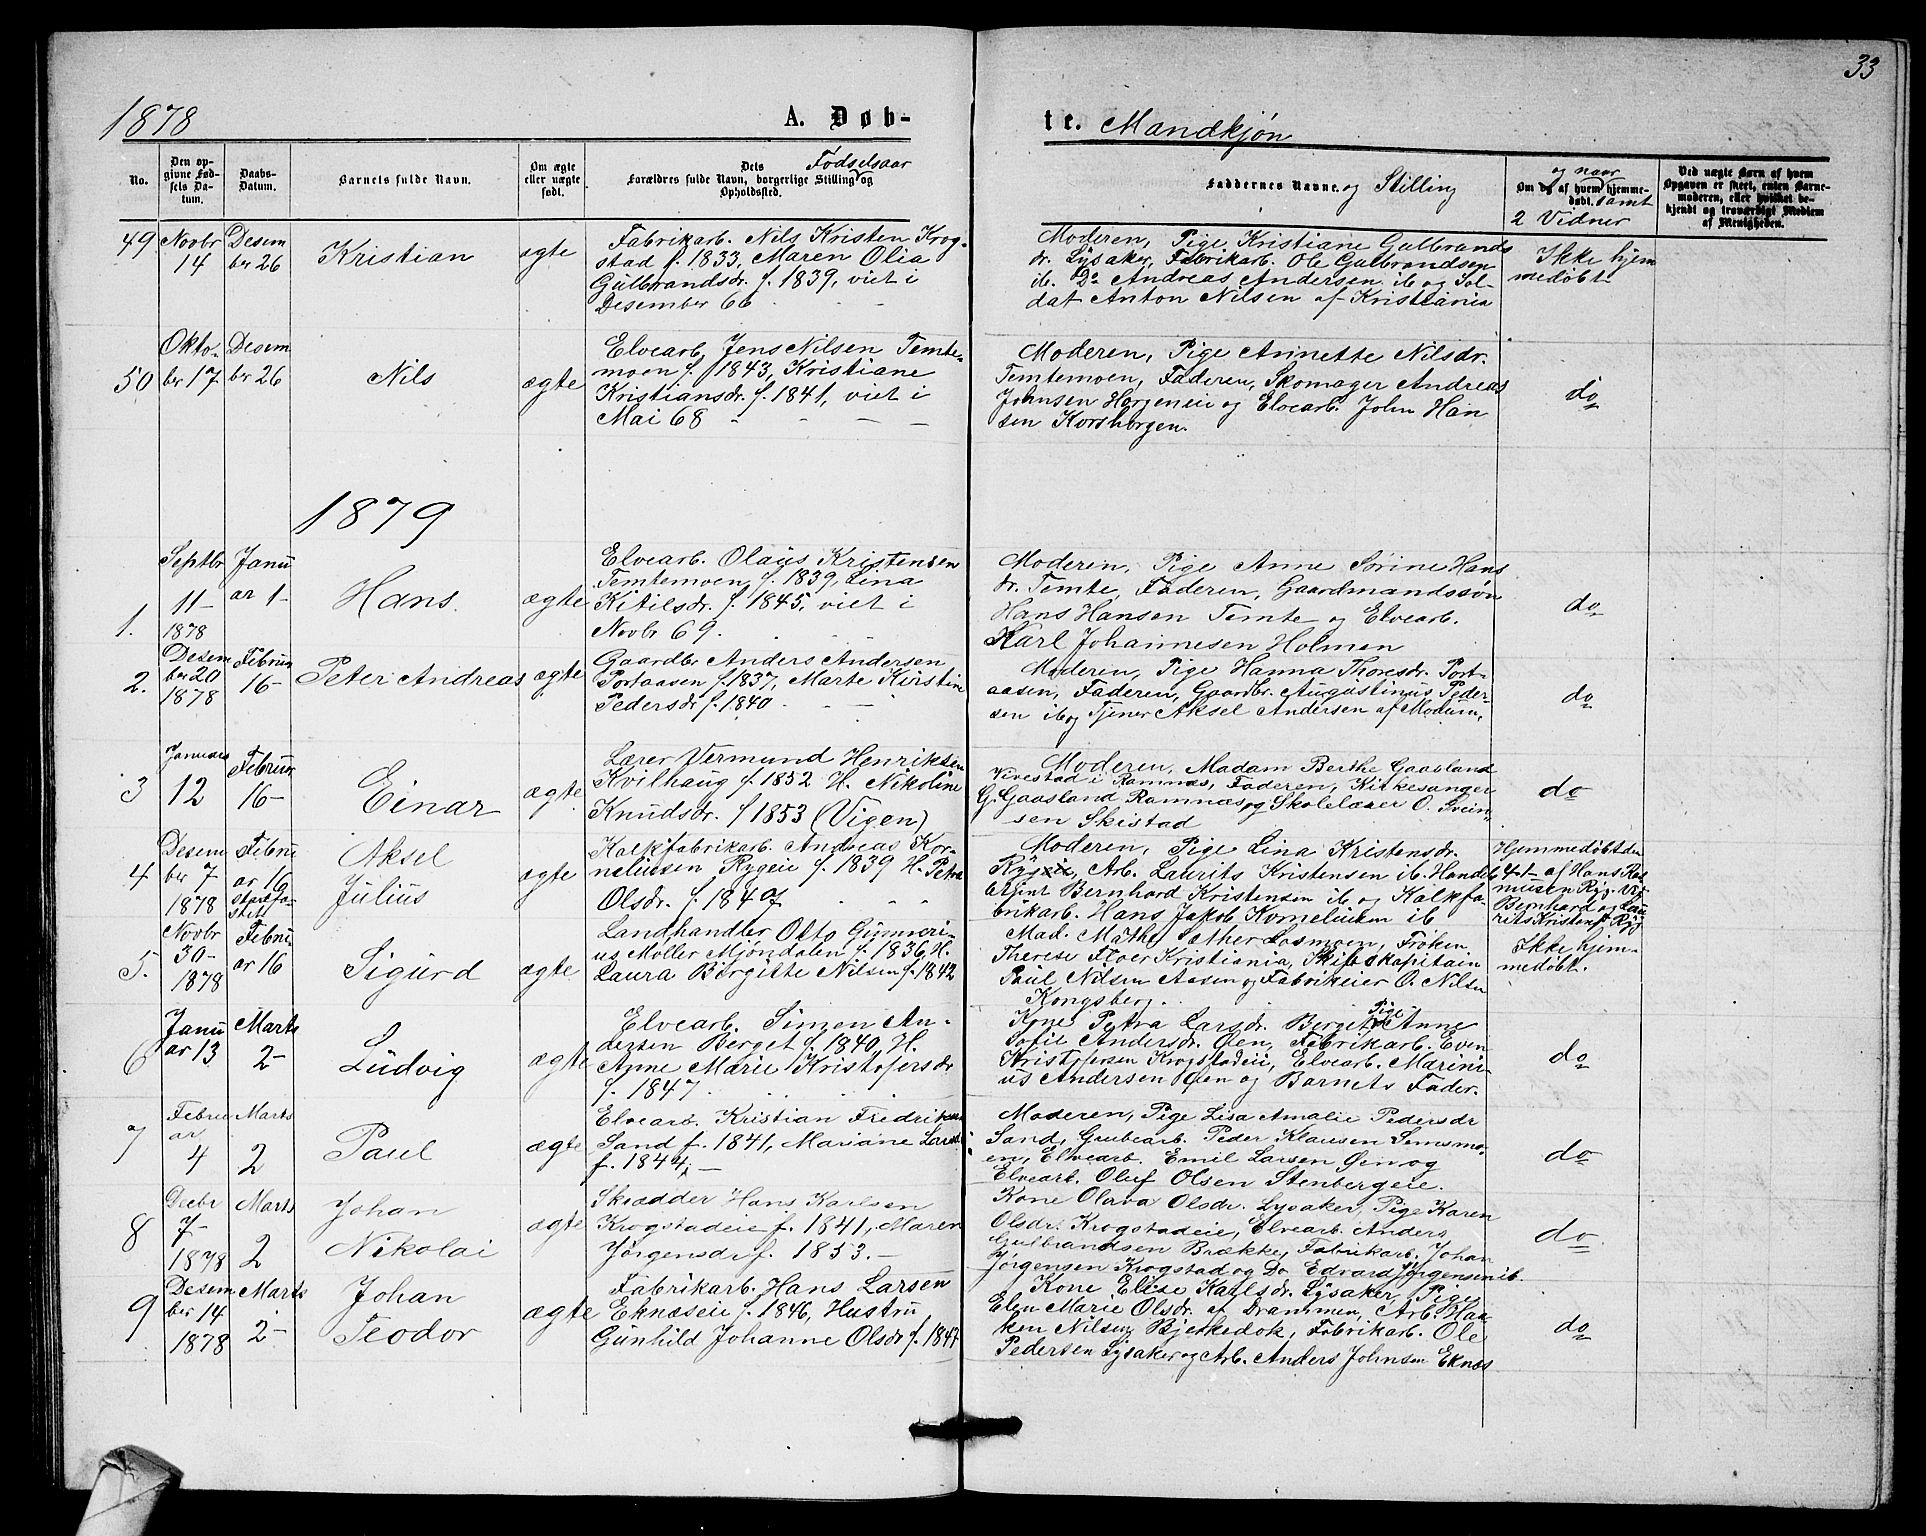 33
1878
A. Døb-
te. Mandkjøn
No.
Den op-
givne Fød-
sels Da-
tum.
Daabs-
Datum.
Barnets fulde Navn.
Om ægte
eller uægte
født.
Dets Fødselsaar
Forældres fulde Navn, borgerlige Stilling og
Opholdssted.
Faddernes Navne og Stilling
og naar
Om og af hvem hjemme-
døbt. samt
2 Vidner
Ved uægte Børn af hvem
Opgaven er skeet, enten Barne-
moderen, eller hvilket be-
kjendt og troværdigt Medlem
af Menigheden.
49 Novbr 14
Desem
ber 26
Kristian
ægte
Fabrikarb. Nils Kristen Krog-
stad f. 1833, Maren Olia
Gulbrandsdr. f. 1839, viet i
Desember 66
Moderen, Pige Kristiane Gulbrands
dr. Lysaker, Fabrikarb. Ole Gulbrandsen
ib. Do Andreas Andersen ib og Sol-
dat Anton Nilsen af Kristiania
Ikke hjem
medøbt
50
Okto-
ber 17
Desem
ber 26
Nils
ægte
Elvearb. Jens Nilsen Temte-
moen f. 1843, Kristiane
Kristiansdr. f. 1841, viet i
Mai 68
Moderen, Pige Annette Nilsdr.
Temtemoen, Faderen, Skomager Andreas
Johnsen Horgeneie og Elvearb. John Han
sen Korsborgen.
do
1879
1.
Septbr
11-
1878
Janu
ar 1-
Hans.
ægte
Elvearb. Olaus Kristensen
Temtemoen f. 1839, Lina
Kitilsdr. f. 1845, viet i
Novbr 69.
Moderen, Pige Anne Sørine Hans
dr. Temte, Faderen, Gaardmandssøn
Hans Hansen Temte og Elvearb.
Karl Johannesen Holmen
do
2.
Desem
ber 20
1878
Februar
16-
Peter Andreas
ægte
Gaardbr Anders Andersen
Portaasen f. 1837, Marte Kirstine
Pedersdr f. 1840
Moderen, Pige Hanna Thoresdr. Port-
aasen, Faderen, Gaardbr. Augustinus Peder-
sen ib og Tjener Aksel Andersen af Modum.
do
3
Januar
12
Februar
16-
Einar
ægte
Lærer Vermund Henriksen
Kvilhaug f. 1852 H. Nikoline
Knudsdr. f 1853 (Vigen)
Moderen, Madam Berthe Gaasland
Vivestad i Ramnæs, Faderen, Kirkesanger
G. Gaasland Ramnæs og Skolelærer O. Svein-
sen Skistad
do
4
Desem
ber 7
1878
Febru
ar 16
Aksel
Julius
ægte
Kalkfabrikarb. Andreas Kor-
neliusen Rygeie f. 1839 H. Petra
Olsdr. f. 1847
Moderen, Pige Lina Kristensdr.
Ryg, Arb. Laurits Kristensen ib. Handels
agent Bernhard Kristensen ib og Kalkfa-
brikarb. Hans Jakob Korneliusen ib
Hjemmedøbt den
4-1- af Hans Ras
musen Ryg. Vid
Bernhard og Lau
rits Kristensen Ryg
5.
Novbr
30-
1878
Febru
ar 16
Sigurd
ægte
Landhandler Otto Gunneri-
us Møller Mjøndalen f. 1836, H.
Laura Birgitte Nilsen f. 1842
Mad. Mathe Sother Losmoen, Frøken
Therese Floer Kristiania, Skibskapitain
Paul Nilsen Aasen og Fabrikeier O. Nilsen
Kongsberg.
Ikke hjem-
medøbt.
6
Janu
ar 13
Marts
2-
Ludvig
ægte
Elvearb. Simen An-
dersen Berget f. 1840, H.
Anne Marie Kristofersdr
f. 1847
Kone Petra Larsdr. Berget, Pige Anne
Sofie Andersdr. Øen, Fabrikarb. Even
Kristofersen Krogstadeie, Elvearb. Marini-
us Andersen Øen og Barnets Fader.
do
7
Febru
ar
4
Marts
2
Paul
ægte
Elvearb. Kristian Fredriksen
Sand f. 1841, Mariane Larsdr
f. 1844
Moderen, Pige Lisa Amalie Pedersdr
Sand, Grubearb. Peder Klausen Semsmo-
en, Elvearb. Emil Larsen Øen og
Elvearb. Oluf Olsen Stenbergeie.
do
8
Decbr
7-
1878
Marts
2
Johan
Nikolai
ægte
Skrædder Hans Karlsen
Krogstadeie f. 1841, Maren
Jørgensdr f. 1853.
Kone Olava Olsdr. Lysaker, Pige Karen
Olsdr. Krogstadeie, Elvearb. Anders
Gulbrandsen Brække, Fabrikarb. Johan
Jørgensen Krogstad og Do Edvard Jørgensen ib.
do
9
Desem
ber 14
1878
Marts
2-
Johan
Teodor
ægte
Fabrikarb. Hans Larsen
Eknæseie f. 1846, Hustru
Gunhild Johanne Olsdr f. 1847
Kone Elise Karlsdr. Lysaker, Pige
Elen Marie Olsdr. af Drammen, Arb. Haa-
ken Nilsen Bjerkedok, Fabrikarb. Ole
Pedersen Lysaker og Arb. Anders Johnsen Eknæs
do